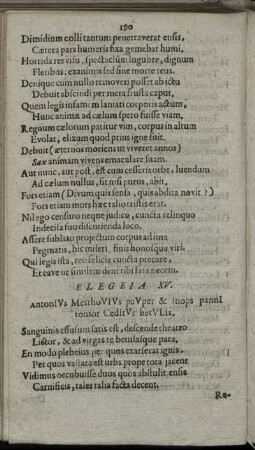 190
Dimidium colli tantum penetraverat ensis,
Cætera pars humeris fixa gemebat humi.
Horrida res visu, spectaclum lugubre, dignum
Fletibus, exanimis sed sine morte reus.
Denique cum nullo removeri posset ab ictu
Debuit abscindi per mera frusta caput.
Quem legis infamem laniati corporis actum,
Hunc animæ ad cælum spero fuisse viam.
Regnum cælorum patitur vim, corpus in altum
Evolat, elixum quod prius igne fuit.
Debuit (æternos moriens ut viveret annos)
Sax animam vivens emaculare suam.
Aut nunc, aut post, est cum cesseris orbe, luendum
Ad cælum nullus, sit nisi purus, abit.
Fors etiam (Divum quis sensa, quis abdita novit?)
Fors etiam mors hæc talio tristis erat.
Nil ego censuro neque judico, cuncta relinquo
Indecisa suo discutienda loco.
Assere sublato projectum corpus ad ima
Pegmatis, hic miseri, finit honosque viri.
Qui legis ista, reo felicia cuncta precare,
Et cave ne similem des tibi fata necem.
ELEGEIA XV.
AntonIVs MerthoVIVs paVper & inops pannI
tonsor CædItVr betVLIs.
Sanguinis effusum satis est, descende theatro
Lictor, & ad virgas te betulasque para,
En modo plebeius per quos exarserat ignis,
Per quos vastata est urbs prope tota jacent
Vidimus occubuisse duos quos abstulit ensis
Carnificis, tales talia facta decent.
Re-